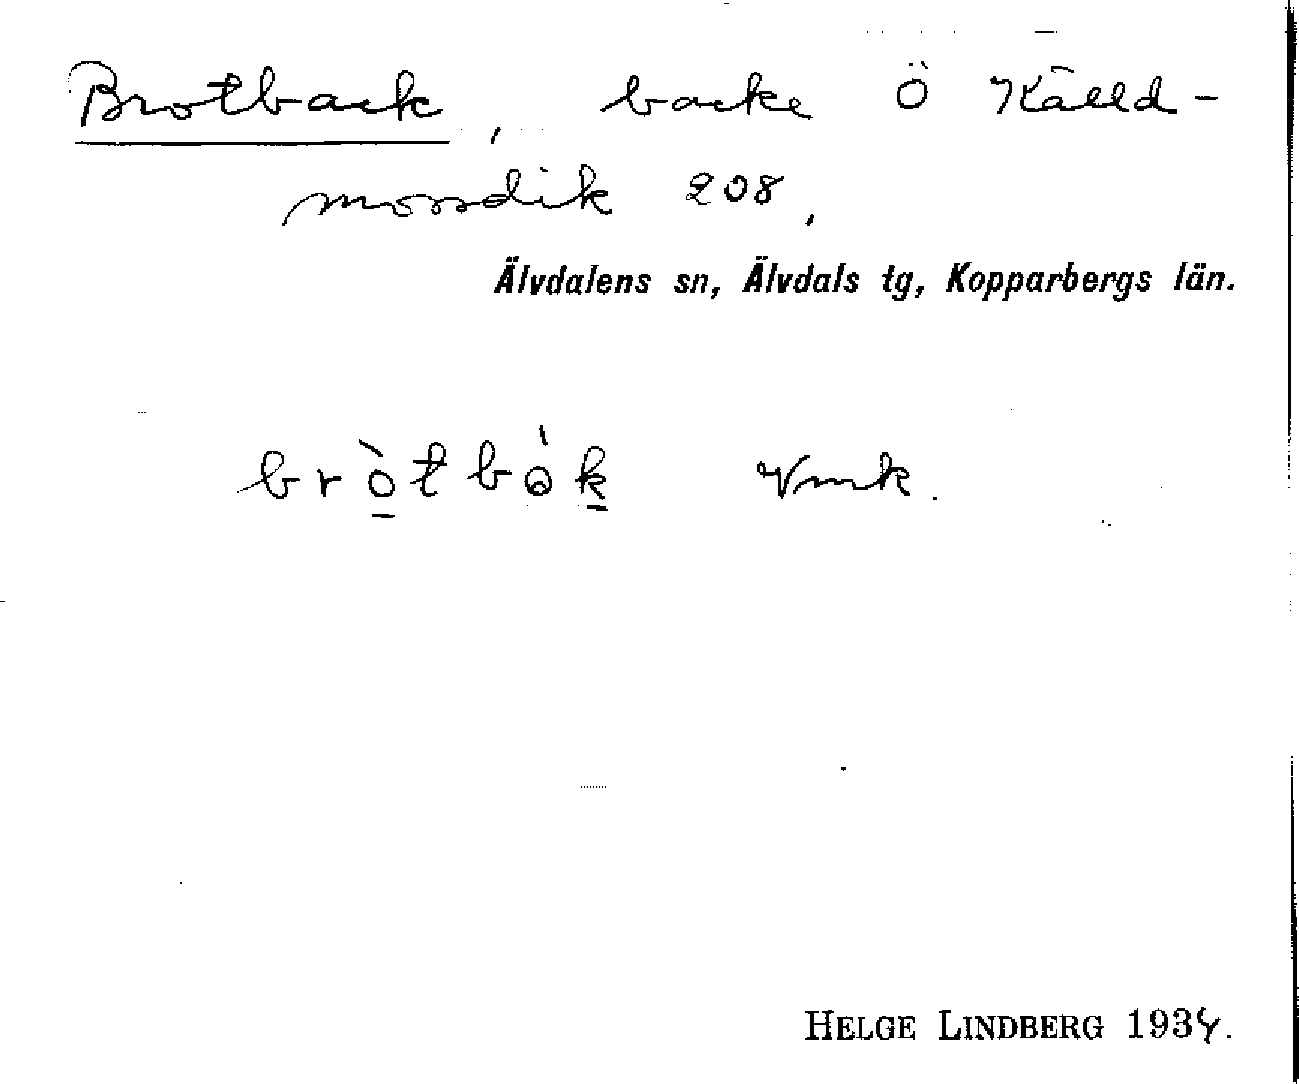 Brotback, backe Ö Källd-
mossdik 208,
Älvdalens sn, Älvdals tg, Kopparbergs län.
bròtbàk Vmk.
HELGE LINDBERG 1934.